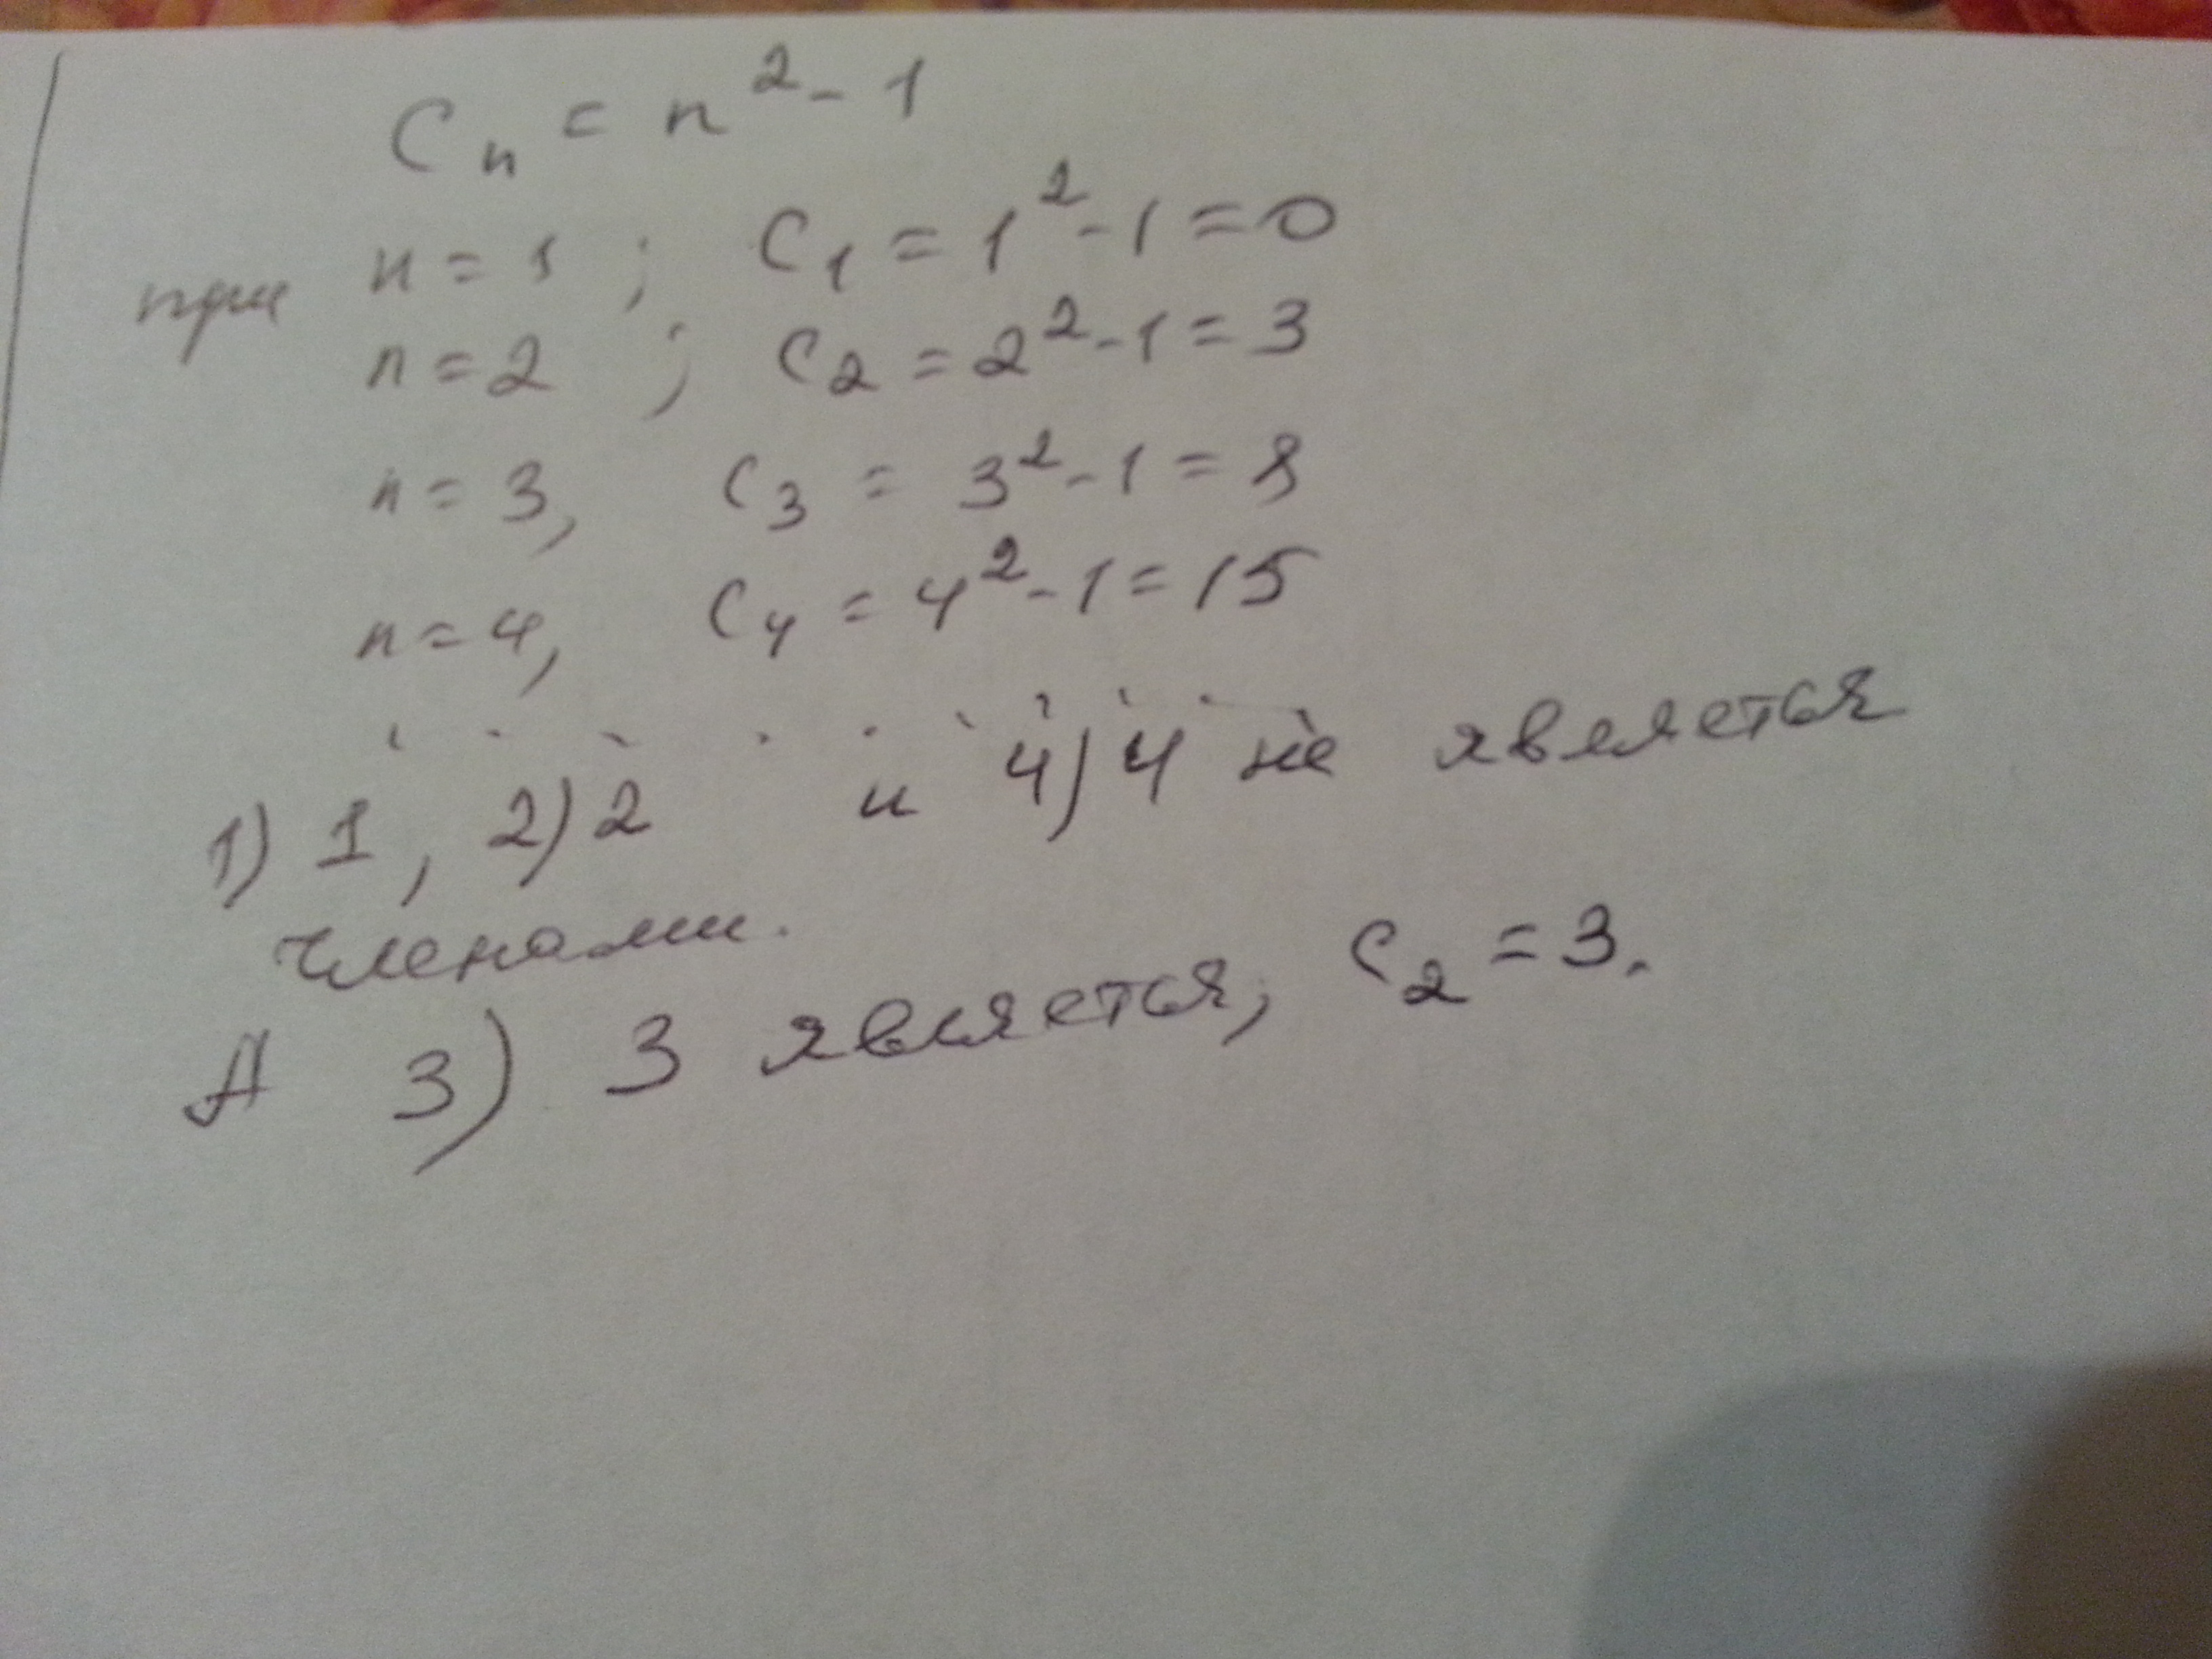 Cₙ = n² - 1
при n = 1 ; C₁ = 1² - 1 = 0
n = 2 ; C₂ = 2² - 1 = 3
n = 3, C₃ = 3² - 1 = 8
n = 4, C₄ = 4² - 1 = 15
1) 1, 2) 2 и 4) 4 не является
членами.
А 3) 3 является, C₂ = 3.